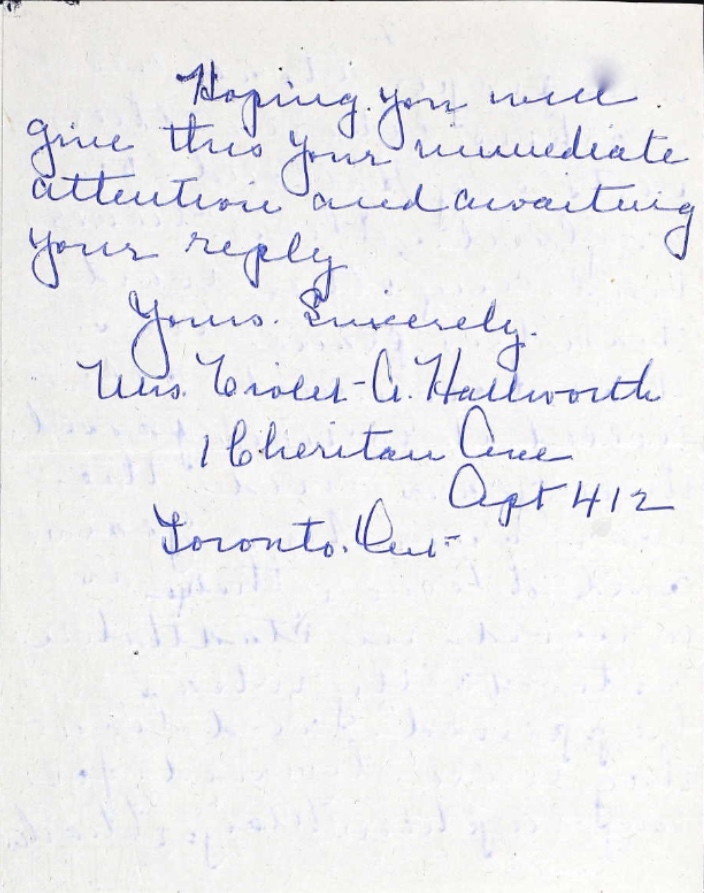 Hoping you will
give this your immediate
attention and awaiting
your reply
Yours. Sincerely.
Mrs. Violet A. Hallworth
1 Cheritan Ave
Apt 412
Toronto. Ont